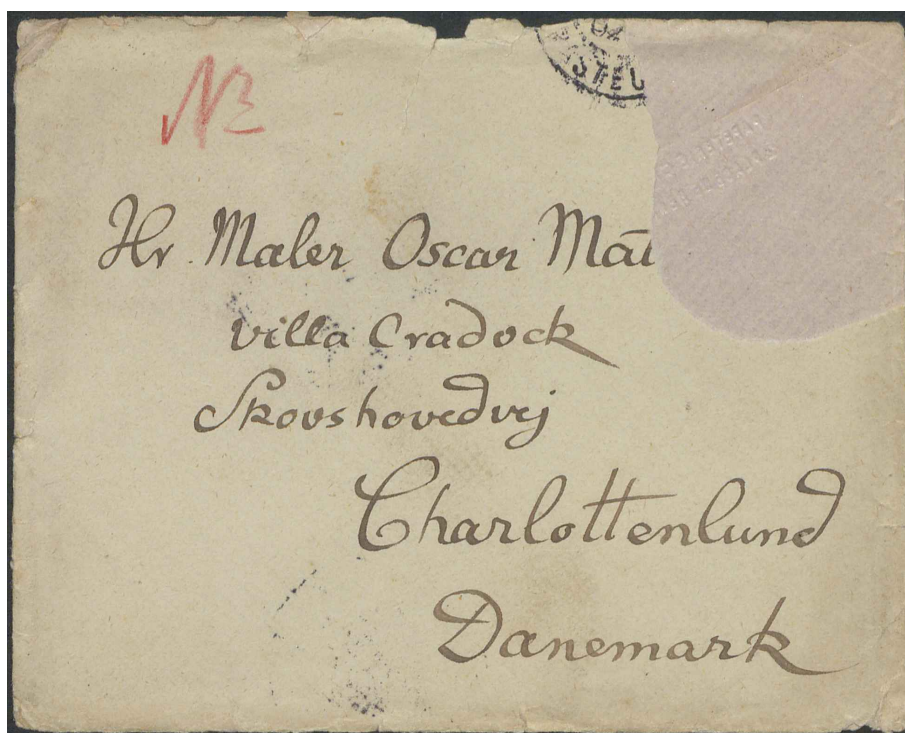 N3
Hr. Maler Oscar
Villa Cradock
Skovshovedvej
Charlottenlund
Danemark